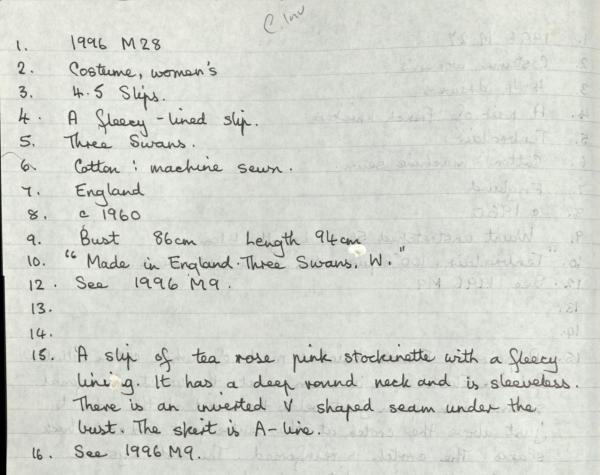 C. Inv
1. 1996 M28
2. Costume, women's
3. 4.5 Slips.
4. A fleecy-lined slip.
5. Three Swans.
6. Cotton : machine sewn.
7. England
8. c 1960
9. Bust 86cm Length 94cm
10. "Made in England. Three Swans. W."
12. See 1996 M9.
13.
14.
15. A slip of tea rose pink stockinette with a fleecy
lining. It has a deep round neck and is sleeveless.
There is an inverted V shaped seam under the
bust. The skirt is A-line.
16. See 1996 M9.